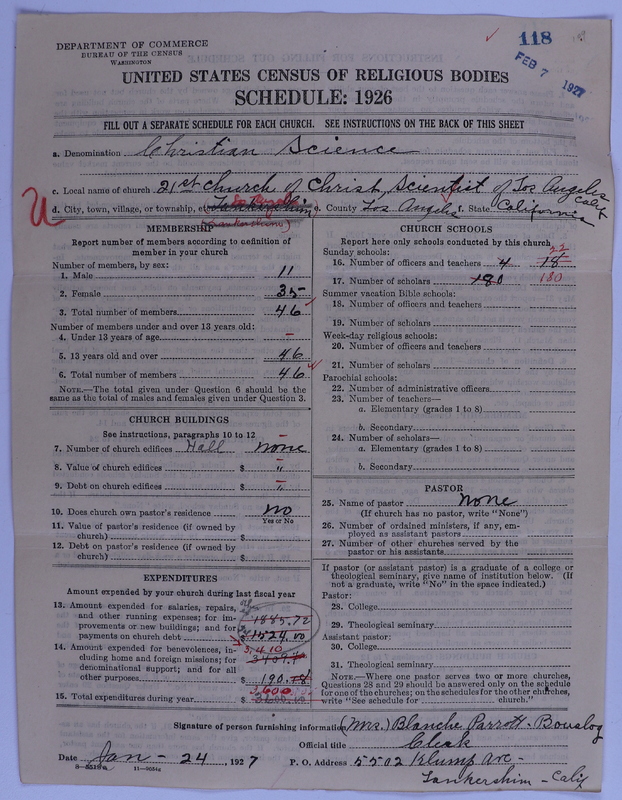 118
FEB 7 1927
DEPARTMENT OF COMMERCE
BUREAU OF THE CENSUS
WASHINGTON
UNITED STATES CENSUS OF RELIGIOUS BODIES
SCHEDULE: 1926
FILL OUT A SEPARATE SCHEDULE FOR EACH CHURCH. SEE INSTRUCTIONS ON THE BACK OF THIS SHEET
a. Denomination Christian Science
c. Local name of church 21st Church of Christ, Scientist of Los Angeles Calif
d. City, town, village, or township, etc. Lankershim e. County Los Angeles f. State California
(Lankershim)
MEMBERSHIP
Report number of members according to definition of
member in your church
Number of members, by sex:
1. Male 11
2. Female 35
3. Total number of members 46
Number of members under and over 13 years old:
4. Under 13 years of age –
5. 13 years old and over 46
6. Total number of members 46
NOTE.—The total given under Question 6 should be the
same as the total of males and females given under Question 3.
CHURCH BUILDINGS
See instructions, paragraphs 10 to 12
7. Number of church edifices Hall none
8. Value of church edifices $ "
9. Debt on church edifices $ "
10. Does church own pastor's residence? no
Yes or No
11. Value of pastor's residence (if owned by
church) $
12. Debt on pastor's residence (if owned by
church) $
EXPENDITURES
Amount expended by your church during last fiscal year
13. Amount expended for salaries, repairs,
and other running expenses; for im-
provements or new buildings; and for
payments on church debt 1885.72
$ 1524.00
3,410
14. Amount expended for benevolences, in-
cluding home and foreign missions; for
denominational support; and for all
other purposes $ 190.18
3,600
15. Total expenditures during year $ 3600.10
CHURCH SCHOOLS
Report here only schools conducted by this church
Sunday schools:
22
16. Number of officers and teachers 4 18
17. Number of scholars 180 180
Summer vacation Bible schools:
18. Number of officers and teachers
19. Number of scholars
Week-day religious schools:
20. Number of officers and teachers
21. Number of scholars
Parochial schools:
22. Number of administrative officers
23. Number of teachers—
a. Elementary (grades 1 to 8)
b. Secondary
24. Number of scholars—
a. Elementary (grades 1 to 8)
b. Secondary
PASTOR
25. Name of pastor None
(If church has no pastor, write "None")
26. Number of ordained ministers, if any, em-
ployed as assistant pastors
27. Number of other churches served by the
pastor or his assistants
If pastor (or assistant pastor) is a graduate of a college or
theological seminary, give name of institution below. (If
not a graduate, write "No" in the space indicated.)
Pastor:
28. College
29. Theological seminary
Assistant pastor:
30. College
31. Theological seminary
NOTE.—Where one pastor serves two or more churches,
Questions 28 and 29 should be answered only on the schedule
for one of the churches; on the schedules for the other churches,
write "See schedule for church.
Signature of person furnishing information (Mrs.) Blanche Parrott-Bouslog
Official title Clerk
Date Jan - 24 1927 P. O. Address 5502 Klump Ave -
8-5518a 11-9034a
Lankershim - Calif